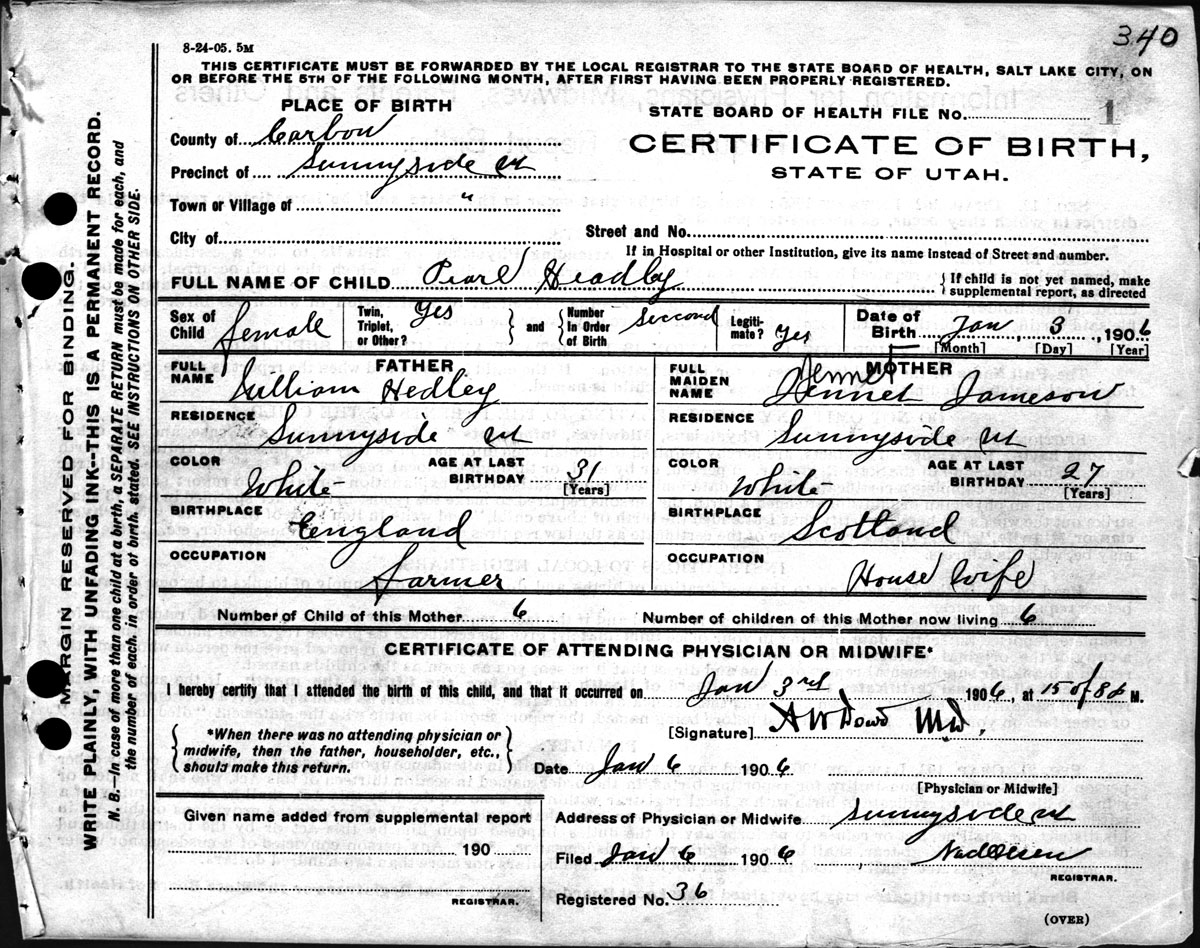 340
8-24-05. 5M
THIS CERTIFICATE MUST BE FORWARDED BY THE LOCAL REGISTRAR TO THE STATE BOARD OF HEALTH, SALT LAKE CITY, ON
OR BEFORE THE 5TH OF THE FOLLOWING MONTH, AFTER FIRST HAVING BEEN PROPERLY REGISTERED.
PLACE OF BIRTH
STATE BOARD OF HEALTH FILE NO. 1
County of Carbon
CERTIFICATE OF BIRTH,
Precinct of Sunnyside Ut
STATE OF UTAH.
Town or Village of "
City of
Street and No.
If in Hospital or other Institution, give its name instead of Street and number.
FULL NAME OF CHILD Pearl Headley
{If child is not yet named, make
supplemental report, as directed
Sex of Child female
Twin, Triplet, or Other? Yes
and
Number In Order of Birth Seccond
Legiti-mate? Yes
Date of Birth Jan 3, 1906
[Month] [Day] [Year]
FATHER
FULL NAME William Hedley
RESIDENCE Sunnyside Ut
COLOR White
AGE AT LAST BIRTHDAY 31
[Years]
BIRTHPLACE England
OCCUPATION Farmer
MOTHER
FULL MAIDEN NAME Jennet Jameson
Jennet
RESIDENCE Sunnyside Ut
COLOR White
AGE AT LAST BIRTHDAY 27
[Years]
BIRTHPLACE Scotland
OCCUPATION House Wife
Number of Child of this Mother 6
Number of children of this Mother now living 6
CERTIFICATE OF ATTENDING PHYSICIAN OR MIDWIFE*
I hereby certify that I attended the birth of this child, and that it occurred on Jan 3rd 1906, at 15 of 8 M.
[Signature] A W Dowd MD.
{*When there was no attending physician or
midwife, then the father, householder, etc.,
should make this return.}
Date Jan 6 1906
[Physician or Midwife]
Given name added from supplemental report
190
REGISTRAR.
Address of Physician or Midwife Sunnyside Ut
Filed Jan 6 1906
REGISTRAR.
Registered No. 36
(OVER)
MARGIN RESERVED FOR BINDING.
WRITE PLAINLY, WITH UNFADING INK--THIS IS A PERMANENT RECORD.
N. B.—In case of more than one child at a birth, a SEPARATE RETURN must be made for each, and
the number of each, in order of birth, stated. SEE INSTRUCTIONS ON OTHER SIDE.